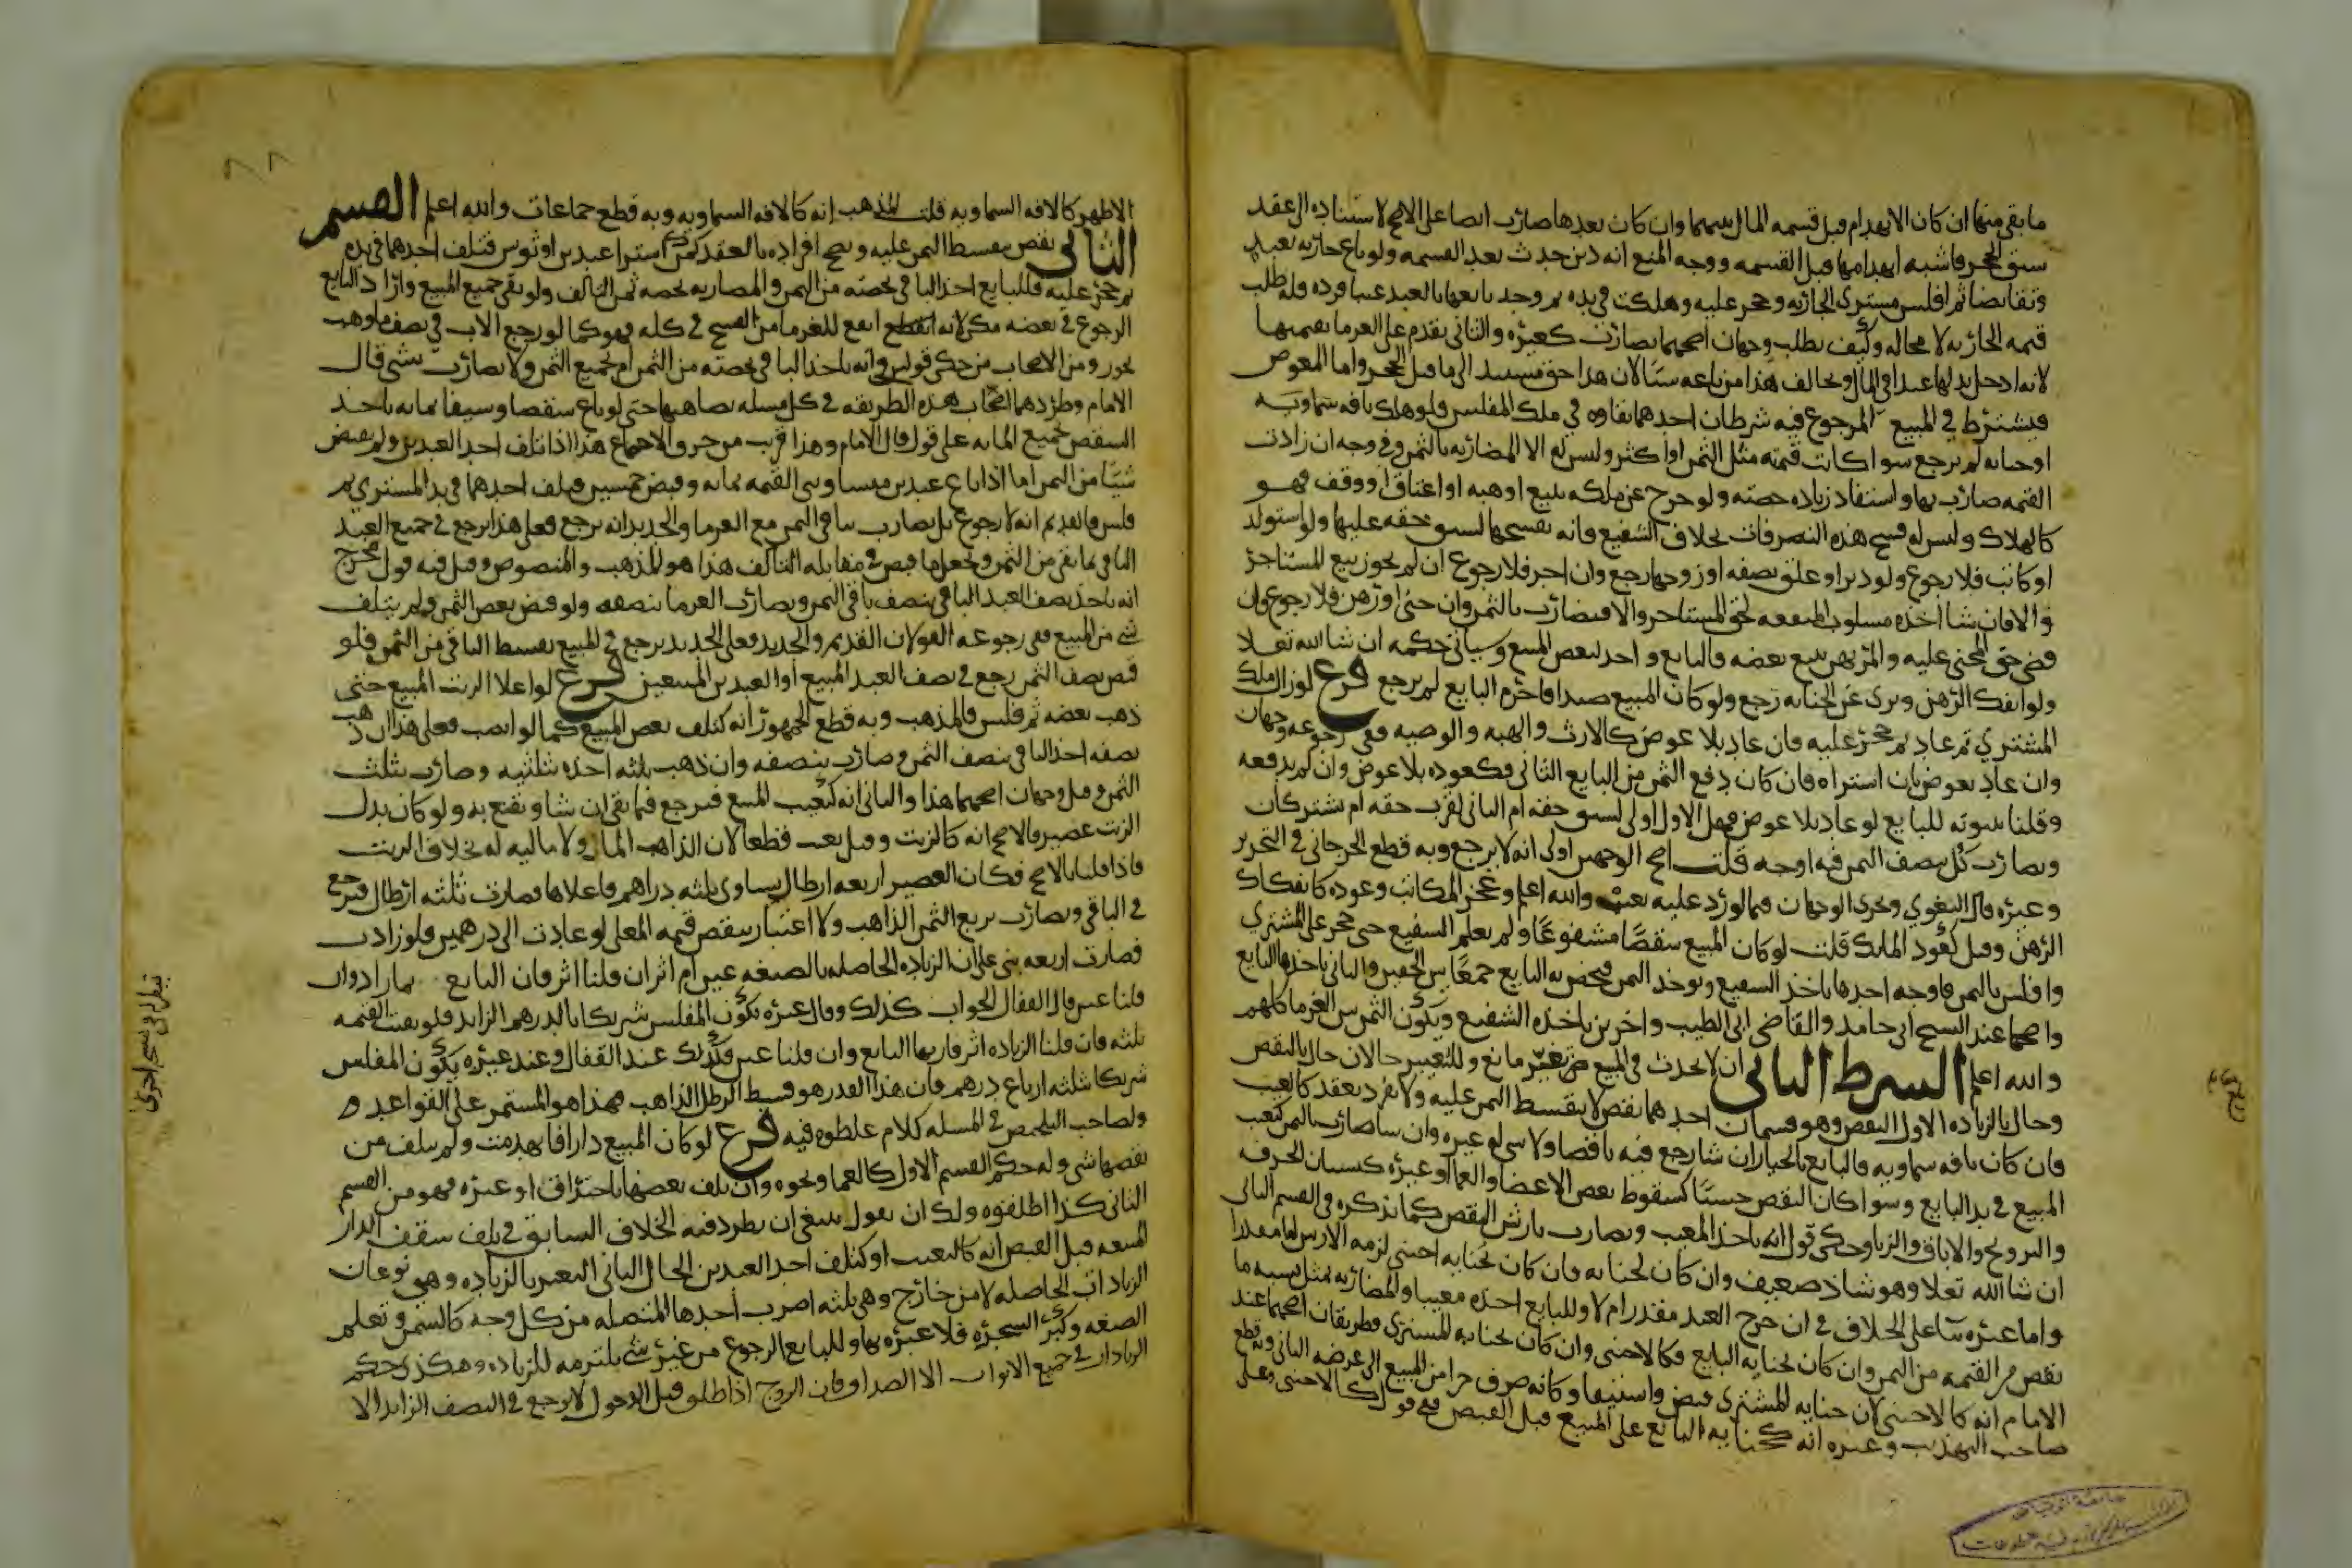 ما بقي منها ان كان الانهدام قبل قسمه المال بينهما وان كان بعدها ضارب ايضا على الاصح لاستناده الى عقد
سبق الحجر فاشبه انهدامها قبل القسمه ووجه المنع انه دين حدث بعد القسمه ولو باع جاريه بعبد
وتقابضا ثم افلس مشتري الجاريه وحجر عليه وهلكت في يده ثم وجد بايعها بالعبد عيبا فرده فله طلب
قيمه الجاريه لا محاله وكيف يطلب وجهان اصحهما يضارب كغيره والثاني يقدم على الغرما بقيمتها
لانه ادخل بدلها عبدا في المال ويخالف هذا من باعه شيئا لان هذا حق مستند الى ما قبل الحجر واما المعوض
فيشترط في المبيع المرجوع فيه شرطان احدهما بقاوه في ملك المفلس فلو هلك بافه سماويه
او جنايه لم يرجع سوا كانت قيمته مثل الثمن او اكثر وليس له الا المضاربه بالثمن وفي وجه ان زادت
القيمه ضارب بها واستفاد زياده حصته ولو خرج عن ملكه ببيع او هبه او اعتاق او وقف فهو
كالهلاك وليس له فسخ هذه التصرفات بخلاف الشفيع فانه يفسخها لسبق حقه عليها ولو استولد
او كاتب فلا رجوع ولو دبر او علق بصفه او زوجها رجع وان اجر فلا رجوع ان لم يجوز بيع المستاجر
والا فان شا اخذه مسلوب المنفعه لحق المستاجر والا فيضارب بالثمن وان جنى او رهن فلا رجوع فان
قضى حق المجني عليه والمرتهن ببيع بعضه فالبايع واجد لبعض المبيع وسياتي حكمه ان شا الله تعلا
ولو انفك الرهن وبري عن الجنايه رجع ولو كان المبيع صيدا فاحرم البايع لم يرجع فرع لو زال ملك
المشتري ثم عاد ثم حجر عليه فان عاد بلا عوض كالارث والهبه والوصيه ففي رجوعه وجهان
وان عاد بعوض بان اشتراه فان كان دفع الثمن من البايع الثاني فكعوده بلا عوض وان لم يدفعه
وقلنا بثبوته للبايع لو عاد بلا عوض فهل الاول اولى لسبق حقه ام الثاني لقرب حقه ام يشتركان
ويضارب كل بنصف الثمن فيه اوجه قلت اصح الوجهين اولى انه لا يرجع وبه قطع الجرجاني في التحرير
وغيره قال البغوي ويجري الوجهان فيما لو رد عليه بعيب والله اعلم وعجز المكاتب وعوده كانفكاك
الرهن وقيل كعود الملك قلت لو كان المبيع شقصا مشفوعا ولم يعلم الشفيع حتى حجر على المشتري
وافلس بالثمن فاوجه احدها ياخذ الشفيع ويوخذ الثمن فيخص به البايع جمعا بين الحقين والثاني ياخذها البايع
واصحها عند الشيخ ابي حامد والقاضي ابي الطيب واخرين ياخذه الشفيع ويكون الثمن بين الغرما كلهم
والله اعلم الشرط الثاني ان لا يحدث في المبيع تغير مانع وللتغيير حالان حال بالنقص
وحال بالزياده الاول النقص وهو قسمان احدهما نقص لا يتقسط الثمن عليه ولا يفرد بعقد كالعيب
فان كان بافه سماويه فالبايع بالخيار ان شا رجع فيه ناقصا ولا شي له غيره وان شا ضارب بالثمن كتعيب
المبيع في يد البايع وسوا كان النقص حسيا كسقوط بعض الاعضا والعما او غيره كنسيان الحرفه
والتزويج والاباق والزنا وحكى قول انه ياخذ المعيب ويضارب بارش النقص كما نذكره في القسم الثاني
ان شا الله تعلا وهو شاذ ضعيف وان كان لجنايه فان كان بجنايه اجنبي لزمه الارش اما مقدرا
واما غيره بنا على الخلاف في ان جرح العبد مقدر ام لا وللبايع اخذه معيبا والمضاربه بمثل نسبه ما
نقص من القيمه من الثمن وان كان بجنايه البايع فكالاجنبي وان كان بجنايه المشتري فطريقان اصحهما عند
الامام انه كالاجنبي لان جنايه المشتري قبض واستيفا وكانه صرف جزا من المبيع الى غرضه الثاني وقطع
صاحب التهذيب وغيره انه كجنايه البايع على المبيع قبل القبض ففي قول كالاجنبي وعلى
٨٨
الاظهر كالافه السماويه قلت المذهب انه كالافه السماويه وبه قطع جماعات والله اعلم القسم
الثاني نقص يتقسط الثمن عليه ويصح افراده بالعقد كمن اشترا عبدين او ثوبين فتلف احدهما في يده
ثم حجر عليه فللبايع اخذ الباقي بحصته من الثمن والمضاربه بحصه ثمن التالف ولو بقي جميع المبيع واراد البايع
الرجوع في بعضه مكن لانه انفع للغرما من الفسخ في كله فهو كما لو رجع الاب في نصف ما وهب
يجوز ومن الاصحاب من حكى قولين في انه ياخذ الباقي بحصته من الثمن ام بجميع الثمن ولا يضارب بشي قال
الامام وطرد اصحاب هذه الطريقه في كل مسله تضاهيها حتى لو باع شقصا وسيفا بمايه ياخذ
الشقص بجميع المايه على قول قال الامام وهذا قريب من خرق الاجماع هذا اذا تلف احد العبدين ولم يقبض
شيئا من الثمن اما اذا باع عبدين متساويي القيمه بمايه وقبض خمسين فتلف احدهما في يد المشتري ثم
فلس فالقديم انه لا رجوع بل يضارب بباقي الثمن مع الغرما والجديد انه يرجع فعلى هذا يرجع في جميع العبد
الباقي بما بقي من الثمن ويجعل ما قبض في مقابله التالف هذا هو المذهب والمنصوص وقيل فيه قول مخرج
انه ياخذ نصف العبد الباقي بنصف باقي الثمن ويضارب الغرما بنصفه ولو قبض بعض الثمن ولم يتلف
شي من المبيع ففي رجوعه القولان القديم والجديد فعلى الجديد يرجع في المبيع بقسط الباقي من الثمن فلو
قبض نصف الثمن رجع في نصف العبد المبيع او العبدين المبيعين فرع لو اغلا الزيت المبيع حتى
ذهب بعضه ثم فلس فالمذهب وبه قطع الجمهور انه كتلف بعض المبيع كما لو انصب فعلى هذا ان ذهب
نصفه اخذ الباقي بنصف الثمن وضارب بنصفه وان ذهب ثلثه اخذه بثلثيه وضارب بثلث
الثمن وقيل وجهان اصحهما هذا والثاني انه كتعيب المبيع فيرجع فيما بقي ان شا ويقنع به ولو كان بدل
الزيت عصير فالاصح انه كالزيت وقيل تعيب قطعا لان الذاهب الما ولا ماليه له بخلاف الزيت
فاذا قلنا بالاصح فكان العصير اربعه ارطال يساوي ثلثه دراهم فاغلاها فصارت ثلثه ارطال فيرجع
في الباقي ويضارب بربع الثمن الذاهب ولا اعتبار بنقص قيمه المغلى لو عادت الى درهمين فلو زادت
فصارت اربعه بني على ان الزياده الحاصله بالصنعه عين ام اثر ان قلنا اثر فان البايع بما زاد وان
قلنا عين قال القفال الجواب كذلك وقال غيره يكون المفلس شريكا بالدرهم الزايد فلو بقيت القيمه
ثلثه فان قلنا الزياده اثر فاز بها البايع وان قلنا عين فكذلك عند القفال وعند غيره يكون المفلس
شريكا بثلثه ارباع درهم فان هذا القدر هو قسط الرطل الذاهب فهذا هو المستمر على القواعد
ولصاحب التلخيص في المسله كلام غلطوه فيه فرع لو كان المبيع دارا فانهدمت ولم يتلف من
نقضها شي وله حكم القسم الاول كالعما ونحوه وان تلف بعضها باحتراق او غيره فهو من القسم
الثاني كذا اطلقوه ولك ان تقول ينبغي ان يطرد فيه الخلاف السابق في تلف سقف الدار
المبيعه قبل القبض انه كالتعيب او كتلف احد العبدين الحال الثاني التغير بالزياده وهي نوعان
الزيادات الحاصله لا من خارج وهي ثلثه اضرب احدها المتصله من كل وجه كالسمن وتعلم
الصنعه وكبر الشجره فلا عبره بها وللبايع الرجوع من غير شي يلتزمه للزياده وهكذى حكم
الزيادات في جميع الابواب الا الصداق فان الزوج اذا طلق قبل الدخول لا يرجع في النصف الزايد الا